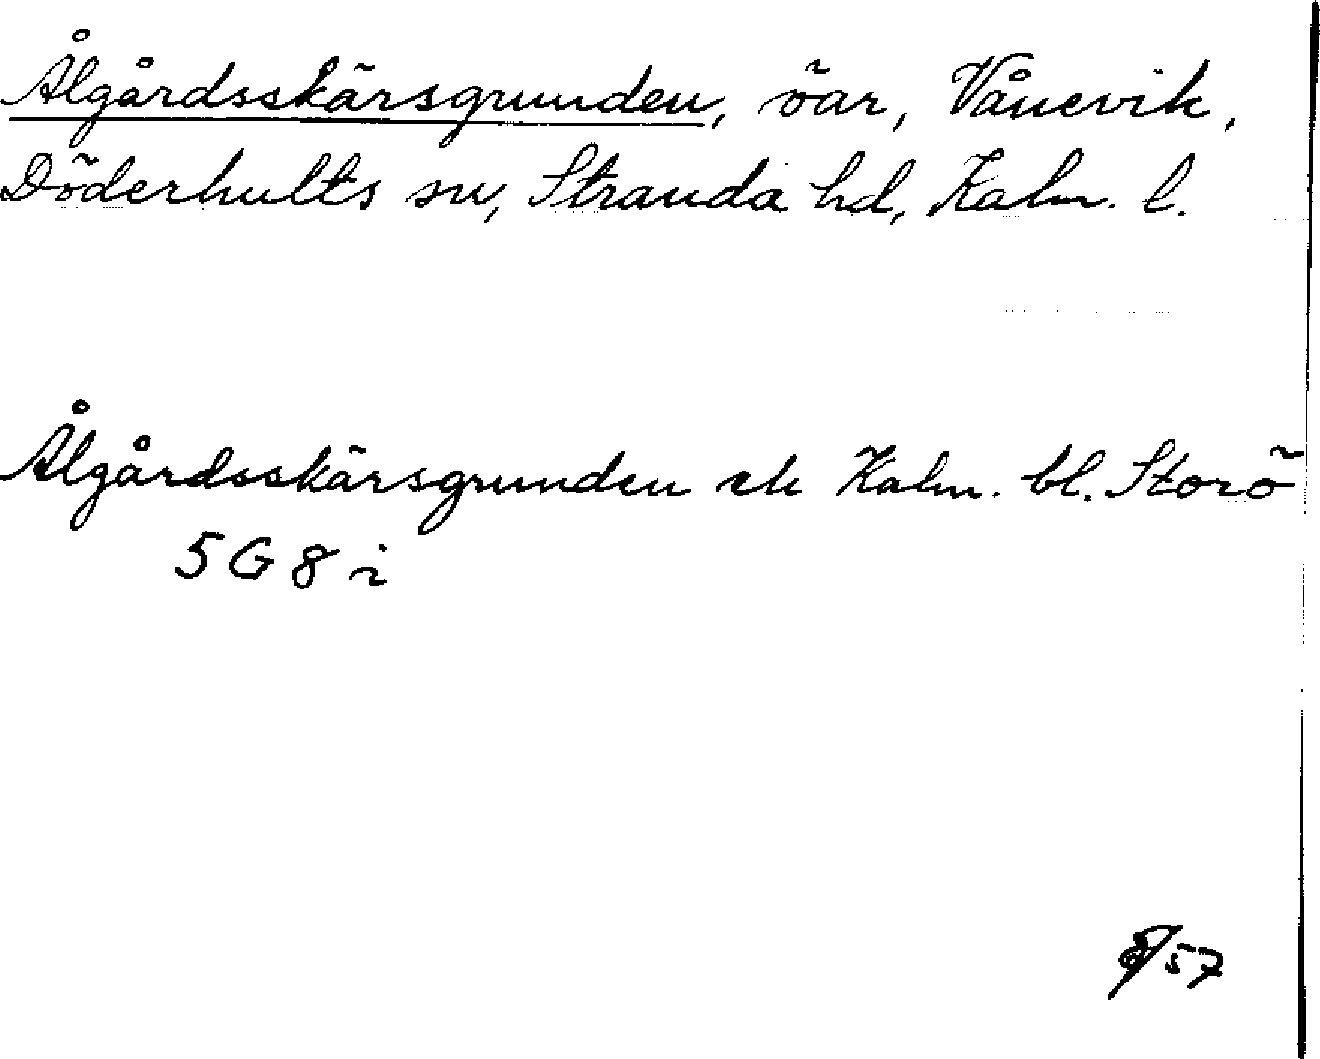 Ålgårdsskärsgrunden, öar, Vånevik,
Döderhults sn, Stranda hd, Kalm. l.
Ålgårdsskärsgrunden ek Kalm. bl. Storö
5 G 8 i
8/57